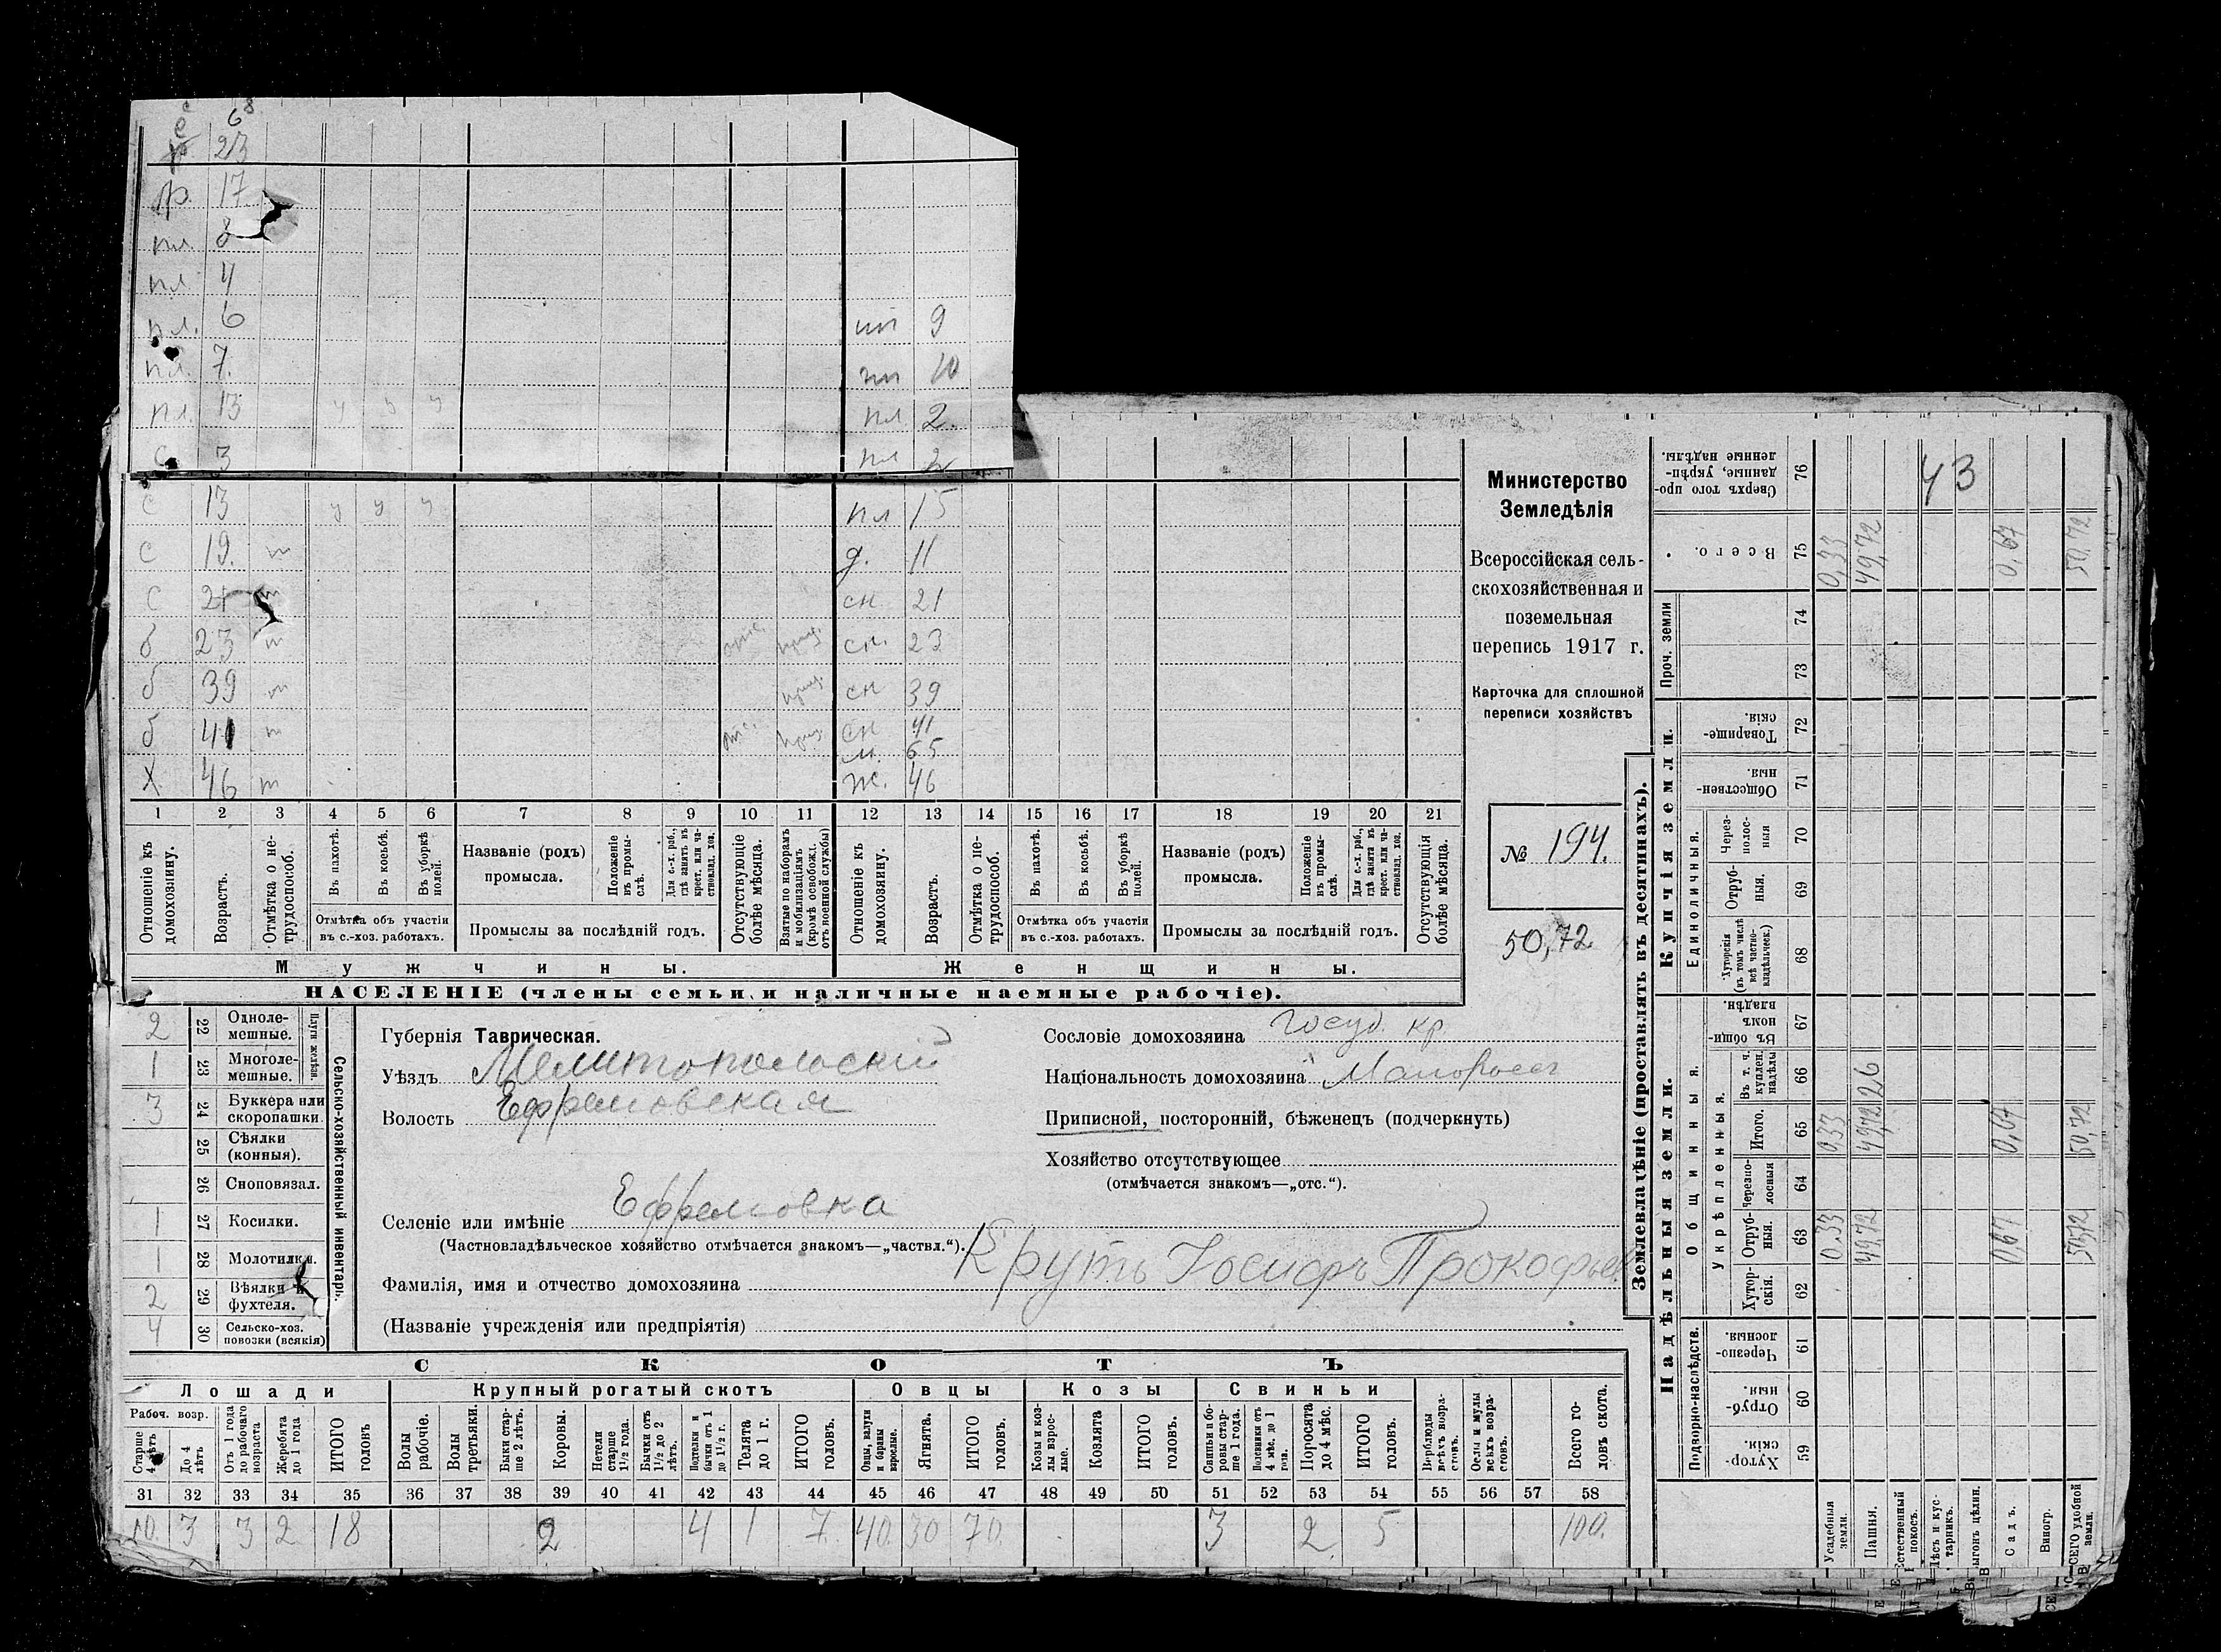 с 6 8
23
пр. 17
пл. 8
пл 4
пл. 6 пл 9
пл. 7. пл 10
пл. 13 у у у пл 2.
с 3 пл 2
с 13 у у у пл 15
с 19. т д. 11
с 21 т сн 21
б 23 т отс. приз. сн. 23
б 39 т приз. сн 39
б 41 т отс. приз. сн 41
м. 65
Х 46 т ж. 46
1 2 3 4 5 6 7 8 9 10 11 12 13 14 15 16 17 18 19 20 21
Отношеніе къ домохозяину.
Возрастъ.
Отмѣтка о не-трудоспособ.
Въ пахотѣ.
Въ косьбѣ.
Въ уборкѣ полей.
Отмѣтка объ участіи
въ с.-хоз. работахъ.
Названіе (родъ)
промысла.
Положеніе въ промы-слѣ.
Для с.-х. раб., гдѣ занятъ въ крест. или ча-стновлад. хоз.
Промыслы за послѣдній годъ.
Отсутствующіе болѣе мѣсяца.
Взятые по наборамъ и мобилизаціямъ (кромѣ освобожд. отъ военной службы)
Отношеніе къ домохозяину.
Возрастъ.
Отмѣтка о не-трудоспособ.
Въ пахотѣ.
Въ косьбѣ.
Въ уборкѣ полей.
Отмѣтка объ участіи
въ с.-хоз. работахъ.
Названіе (родъ)
промысла.
Положеніе въ промы-слѣ.
Для с.-х. раб., гдѣ занята въ крест. или ча-стновлад. хоз.
Промыслы за послѣдній годъ.
Отсутствующія болѣе мѣсяца.
Мужчины. Женщины.
НАСЕЛЕНІЕ (члены семьи и наличные наемные рабочіе).
Министерство
Земледѣлія
Всероссійская сель-
скохозяйственная и
поземельная
перепись 1917 г.
Карточка для сплошной
переписи хозяйствъ
№ 194.
50,72
2 22 Одноле-мешные.
1 23 Многоле-мешные.
Плуги желѣзн.
3 24 Буккера или скоропашки.
25 Сѣялки (конныя).
26 Сноповязал.
1 27 Косилки.
1 28 Молотилки.
2 29 Вѣялки и фухтеля.
4 30 Сельско-хоз. повозки (всякія)
Сельско-хозяйственный инвентарь.
Губернія Таврическая.
Уѣздъ Мелитопольскій
Волость Ефремовская
Селеніе или имѣніе Ефремовка
(Частновладѣльческое хозяйство отмѣчается знакомъ—„частвл.“).
Фамилія, имя и отчество домохозяина Крутъ Іосифъ Прокофьев.
(Названіе учрежденія или предпріятія)
Сословіе домохозяина госуд. кр
Національность домохозяина Малоросс
Приписной, посторонній, бѣженецъ (подчеркнуть)
Хозяйство отсутствующее
(отмѣчается знакомъ—„отс.“).
СКОТЪ
Лошади Крупный рогатый скотъ Овцы Козы Свиньи
Рабоч. возр.
Старше 4 лѣтъ
До 4 лѣтъ
Отъ 1 года до рабочаго возраста
Жеребята до 1 года
ИТОГО головъ
Волы рабочіе.
Волы третьяки.
Быки стар-ше 2 лѣтъ.
Коровы.
Нетели старше 1½ года.
Бычки отъ 1½ до 2 лѣтъ.
Подтелки и бычки отъ 1 до 1½ г.
Телята до 1 г.
ИТОГО головъ.
Овцы, валухи и бараны взрослые.
Ягнята.
ИТОГО головъ.
Козы и коз-лы взрос-лые.
Козлята
ИТОГО головъ.
Свиньи и бо-ровы стар-ше 1 года.
Подсвинки отъ 4 мѣс. до 1 года.
Поросята до 4 мѣс.
ИТОГО головъ.
Верблюды всѣхъ возра-стовъ.
Ослы и мулы всѣхъ возра-стовъ.
Всего го-ловъ скота.
31 32 33 34 35 36 37 38 39 40 41 42 43 44 45 46 47 48 49 50 51 52 53 54 55 56 57 58
10. 3 3 2 18 2 4 1 7. 40. 30 70. 3 2 5 100.
Землевладѣніе (проставлять въ десятинахъ).
Надѣльныя земли. Купчія земли.
Подворно-наслѣдств. Общинныя. Укрѣпленныя. Единоличныя.
Проч. земли
Сверхъ того про-данные, укрѣп-ленные надѣлы. 76 43
Всего. 75 0,33 49,72 0,67 50,72
74
73
Товарище-скія. 72
Обществен-ныя 71
Через-полос-ныя 70
Отруб-ныя. 69
Хуторскія (въ томъ числѣ всѣ частно-владѣльческ.) 68
Въ общин-номъ владѣн. 67
Въ т. ч. куплен. надѣлы 66 26
Итого. 65 0,33 49,72 0,67 50,72
Черезпо-лосныя 64
Отруб-ныя. 63 0,33 49,72 0,67 50,72
Хутор-скія. 62
Черезпо-лосныя. 61
Отруб-ныя. 60
Хутор-скія. 59
Усадебныя земли.
Пашня.
Естественный покосъ.
Лѣсъ и кус-тарникъ.
Выгонъ цѣлин.
Садъ.
Виногр.
ВСЕГО удобной земли.